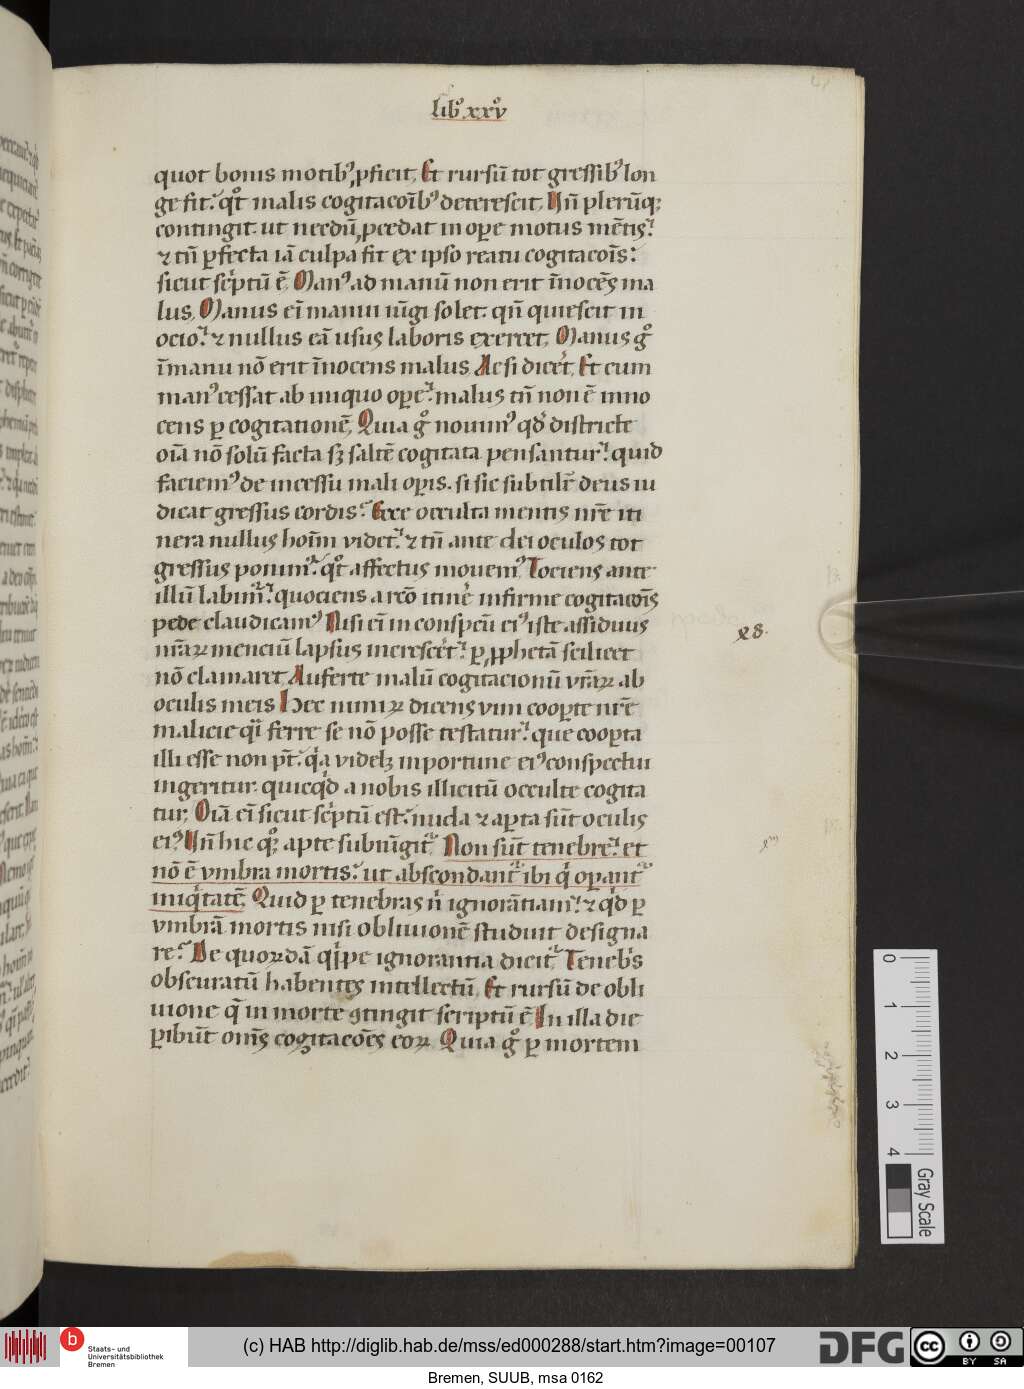 libꝰ xxvͦ
quot bonis motibꝰ ꝓficit. Et rursū tot gressibꝰ lon
ge fit. qͦt malis cogitacoı̄bꝰ deterescit. Uñ plerūqꝫ
contingit. ut necdū ꝓcedat in oꝑe motus mētis.
⁊ tn̄ ꝑfecta iā culpa sit ex ipso reatu cogitacoı̄s.
sicut scͥptū ē. Manꝰ ad manū non erit īnocēs ma
lus. Manus eı̄ manui iūgi solet. qn̄ quiescit in
ocio. ⁊ nullus eā usus laboris exercet. Manus gͦ
ī manu nō erit īnocens malus Ac si dicer̄t. Et cum
manꝰ cessat ab iniquo oꝑe. malus tn̄ non ē inno
cens ꝑ cogitationē. Quia gͦ nouimꝰ qd̄ districte
oı̄a nō solū facta sꝫ saltē cogitata pensantur. quid
faciemꝰ de incessu mali oꝑis. si sic subtilr̄ deus iu
dicat gressus cordis. Ecce occulta mentis nr̄e iti
nera nullus hom̄ videt. ⁊ tn̄ ante dei oculos tot
gressus ponimꝰ. qͦt affectus mouemꝰ Tociens ante
illū labimꝰ. quociens a rc̄o itiner̄e infirme cogitacoı̄s
pede claudicamꝰ Nisi eı̄ in conspcū eiꝰ iste assiduus
nr̄aꝝ menciū lapsus increscer̄et. ꝑ ꝓphetā scilicet
nō clamaret. Auferte malū cogitacionū vr̄aꝝ ab
oculis meis Hec nimiꝝ dicens vim cooꝑte nr̄e
malicie qͥ ferre se nō posse testatur. que cooꝑta
illi esse non pt̄. qͥa videlꝫ inportune eiꝰ conspectui
ingeritur. quicqͥd a nobis illicitū occulte cogita
tur. Oı̄a eı̄ sicut scͥptū est. nuda ⁊ aꝑta sūt oculis
eiꝰ Uñ hic qꝫ apte subiūgit. Non sūt tenebre. et
nō ē vmbra mortis. ut abscondant ibi qͥ oꝑant
iniqͥtatē. Quid ꝑ tenebras n̄ ignorātiam. ⁊ qͥd ꝑ
vmbrā mortis nisi obliuionē studuit designa
re. De quorꝫdā qͥppe ignorantia dicit. Tenebͥs
obscuratū habentes intellectū. Et rursū de obli
uione q̄ in morte ꝯtingit scriptū ē. In illa die
ꝑibūt oms̄ cogitacoēs eoꝝ Quia gͦ ꝑ mortem
28.
0
1
2
3
4
Gray Scale
b
Staats- und
Universitätsbibliothek
Bremen
(c) HAB http://diglib.hab.de/mss/ed000288/start.htm?image=00107
DFG
cc
BY SA
Bremen, SUUB, msa 0162